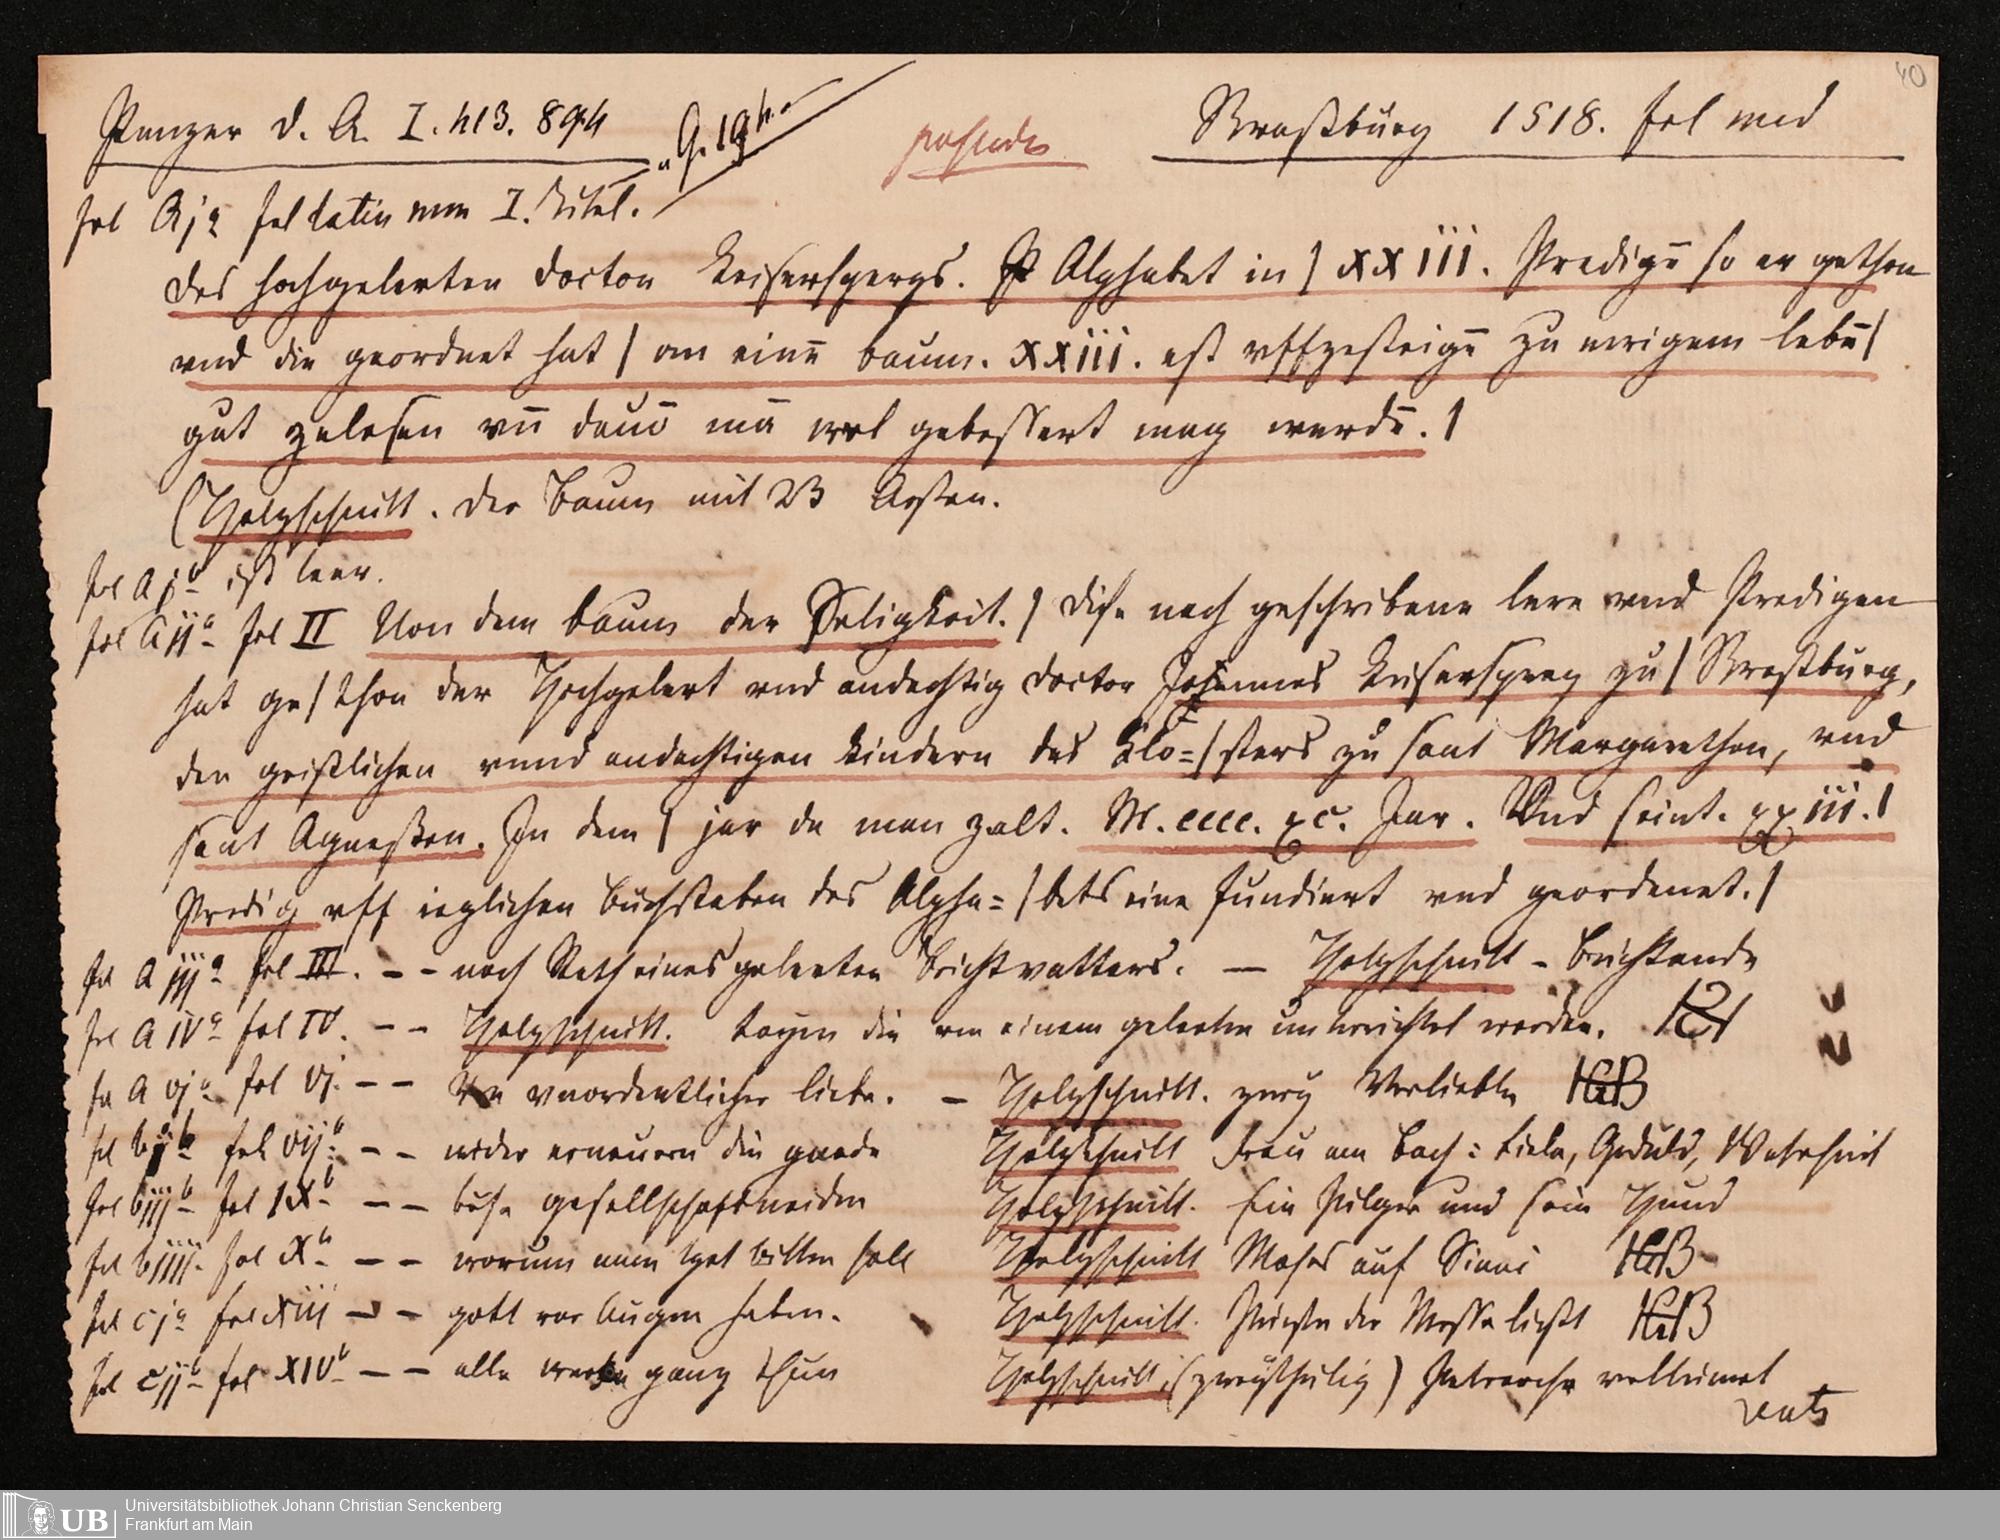 40
Panzer d. A. I. 413. 894 G. 19
possideo
Straßburg 1518. fol min
fol Aja fol I. Titel.
Des hochgelerten doctor Keiserspergs. Alphabet in / XXiii. Predigē so er gethon
vnd die geordnet hat / an einē baum. XXiii. est vffzesteigē zu ewigem lebē /
gut zelesen vn̄ mā wol gebessert mag werdē. /
(Holzschnitt. Der Baum mit 23 Aesten.
fol Ajb ist leer.
fol Aija fol II Von dem baum der Seligkeit. / Dise nach geschribene lere vnd Predigen
hat ge / thon der Hochgelert vnd andechtig doctor Johannes Keisersperg zu / Straßburg,
den geistlichen vnnd andechtigen kindern des Clo= / sters zu sant Margarethen, vnd
sant Agnesen. In dem / jar da man zalt. M.cccc.xc. Jar. Vnd seint. xxiii. /
Predig vff ieglichen buchstaben des Alpha= / bets eine fundiert vnd geordenet. /
fol A iija fol III. – – nach Rath eines gelerten Bichtvatters. — Holzschnitt – Beichtende
fol A IVa fol IV. – – Holzschnitt. Layen die von einem gelerten unterrichtet werden.
fol A vja fol Vj. – – vnordentlicher liebe. – Holzschnitt. zwey Verliebte HB
fol fol Vija – – wider erneuern die gnade Holzschnitt Frau am Bach: Liebe, Geduld, Wahrheit
fol biijb fol IXb – – böse gesellschaft meiden Holzschnitt. Ein Pilger und sein Hund
fol biiij. fol Xa – – worum man got bitten soll Holzschnitt Moses auf Sinai HB
fol cja fol XIII – – gott vor Augen haben. Holzschnitt. Priester der Messe liest HB
fol cijb fol XIVb – – alle werke ganz thun Holzschnitt, (zweytheilig)
UB Universitätsbibliothek Johann Christian Senckenberg
Frankfurt am Main